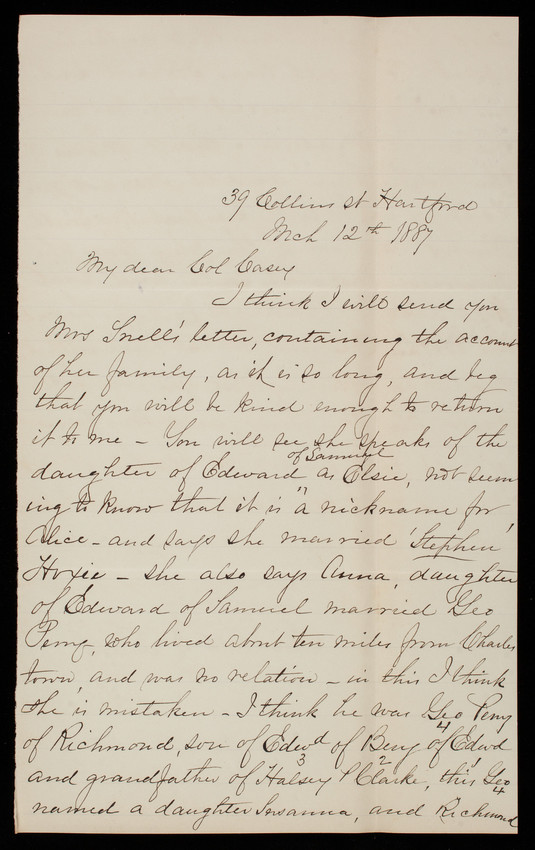 39 Collins st Hartford
Mch 12th 1887
My dear Col Casey
I think I will send you
Mrs Snell's letter, containing the account
of her family, as it is so long, and beg
that you will be kind enough to return
it to me - You will see she speaks of the
daughter of Edward of Samuel as Elsie, not seem
ing to know that it is a nickname for
Alice - and says she married 'Stephen'
Hoxie - she also says Anna, daughter
of Edward of Samuel married Geo
Perry, who lived about ten miles from Charles
town, and was no relation - in this I think
she is mistaken - I think he was Geo Perry
of Richmond, son of Edwd of Benj of Edwd
and grandfather of Halsey P Clarke, this Geo
named a daughter Susanna, and Richmond